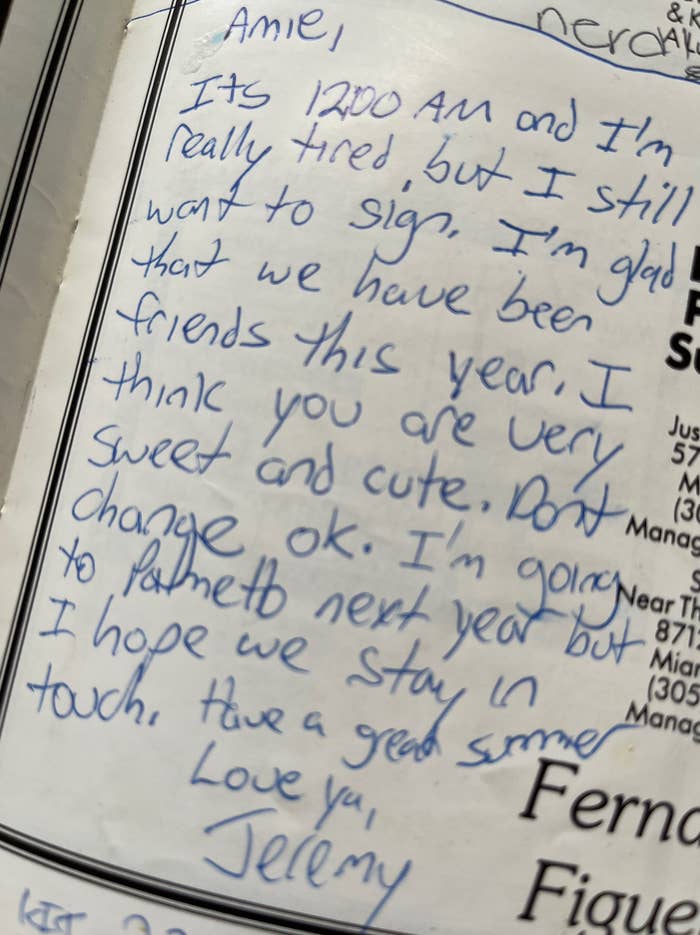 Amie,
nerd
& K
Its 12:00 AM and I'm
really tired, but I still
want to sign. I'm glad
that we have been
friends this year. I
think you are very
sweet and cute. Dont
change ok. I'm going
to Palmetto next year but
I hope we stay in
touch. Have a great summer
Love ya,
Jeremy
Su
Jus
57
M
(30
Manag
Near Th
871
Miar
(305
Manag
Ferna
Figue
KIT